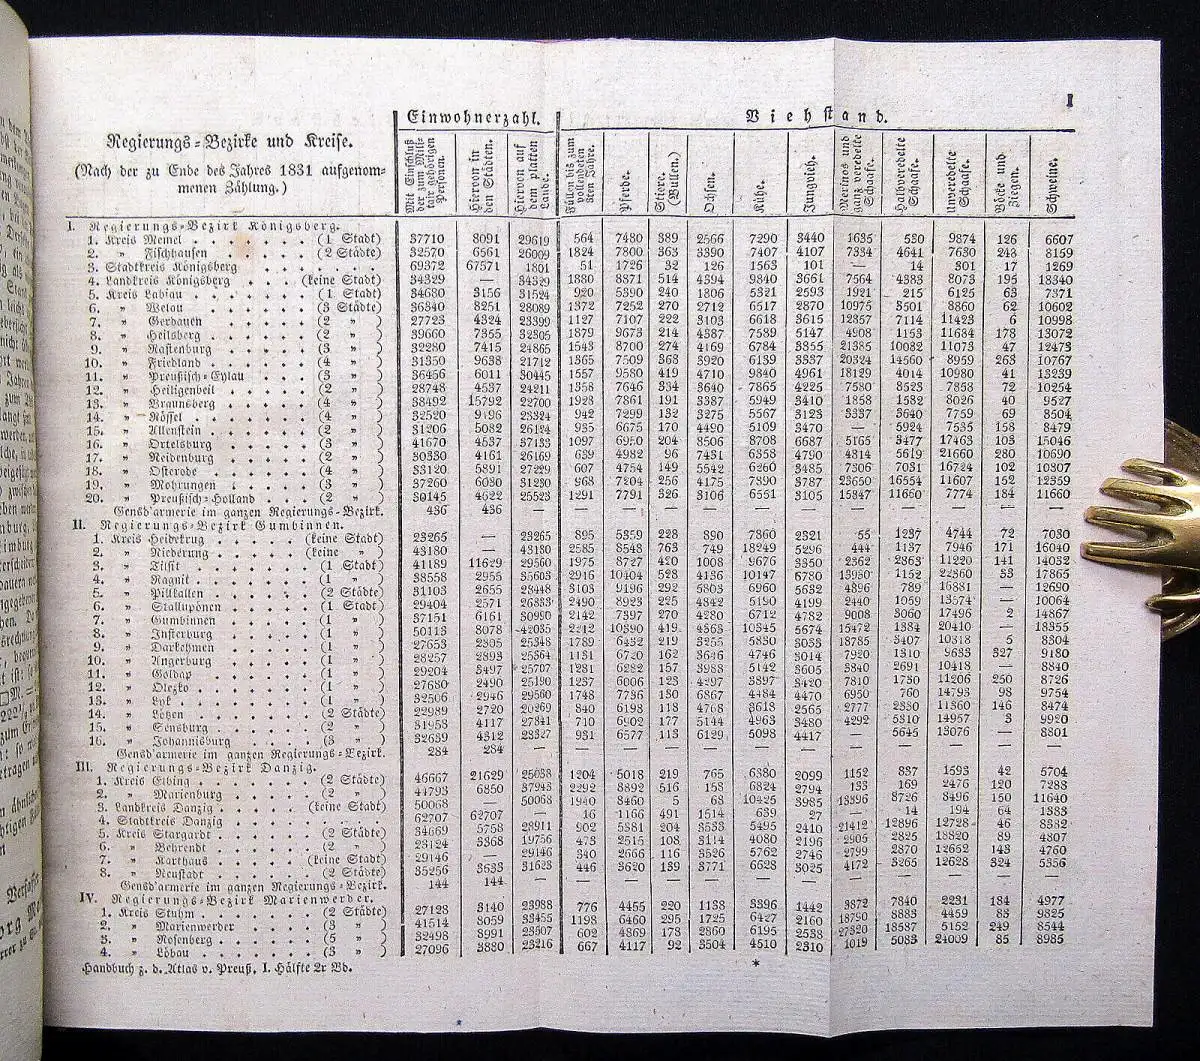 I
Einwohnerzahl. Viehstand.
Regierungs-Bezirke und Kreise.
(Nach der zu Ende des Jahres 1831 aufgenommenen Zählung.)
Mit Einschluß der zum Militair gehörigen Personen.
Hiervon in den Städten.
Hiervon auf dem platten Lande.
Füllen bis zum vollendeten 3ten Jahre.
Pferde.
Stiere. (Bullen.)
Ochsen.
Kühe.
Jungvieh.
Merinos und ganz veredelte Schaafe.
Halbveredelte Schaafe.
Unveredelte Schaafe.
Böcke und Ziegen.
Schweine.
I. Regierungs-Bezirk Königsberg.
1. Kreis Memel (1 Stadt) 37710 8091 29619 564 7480 389 2566 7290 3440 1635 530 9874 126 6607
2. „ Fischhausen (2 Städte) 32570 6561 26009 1824 7800 363 3390 7407 4107 7334 4641 7630 243 8159
3. Stadtkreis Königsberg 69372 67571 1801 51 1726 32 126 1563 101 — 14 301 17 1269
4. Landkreis Königsberg (keine Stadt) 34329 — 34329 1880 8871 514 4394 9840 3661 7564 4383 8073 195 18340
5. Kreis Labiau (1 Stadt) 34680 3156 31524 920 5390 240 1806 5321 2593 1921 215 6125 63 7371
6. „ Welau (3 Städte) 36340 8251 28089 1372 7252 270 2712 6517 2870 10975 3501 8860 62 10602
7. „ Gerdauen (2 „ ) 27723 4324 23399 1127 7107 222 3103 6618 3615 12357 7114 11423 6 10998
8. „ Heilsberg (2 „ ) 39660 7355 32305 1879 9673 214 4387 7589 5147 4908 1153 11684 178 13072
9. „ Rastenburg (3 „ ) 32280 7415 24865 1543 8700 274 4169 6784 3855 21385 10082 11073 47 12473
10. „ Friedland (4 „ ) 31350 9638 21712 1365 7509 368 3920 6139 3337 20324 14560 8959 263 10767
11. „ Preußisch-Eylau (3 „ ) 36456 6011 30445 1557 9580 419 4710 9840 4961 18129 4014 10980 41 13239
12. „ Heiligenbeil (2 „ ) 28748 4537 24211 1358 7646 334 3640 7865 4225 7580 8523 7858 72 10254
13. „ Braunsberg (4 „ ) 38492 15792 22700 1923 7861 191 3387 5949 3410 1858 1582 8026 40 9527
14. „ Rössel (4 „ ) 32520 9196 23324 942 7299 132 3275 5567 3123 3337 3640 7759 69 8504
15. „ Allenstein (2 „ ) 31206 5082 26124 935 6675 170 4490 5109 3470 — 5924 7535 158 8479
16. „ Ortelsburg (3 „ ) 41670 4537 37133 1097 6950 204 8506 8708 6687 5165 3477 17463 103 15046
17. „ Neidenburg (2 „ ) 30330 4161 26169 639 4982 96 7431 6358 4790 4814 5619 21660 280 10690
18. „ Osterode (4 „ ) 33120 5891 27229 607 4754 149 5542 6260 3485 7306 7031 16724 102 10307
19. „ Mohrungen (3 „ ) 37260 6030 31230 968 7204 256 4175 7890 3787 23650 16554 11607 152 12359
20. „ Preußisch-Holland (2 „ ) 30145 4622 25523 1291 7791 326 3106 6551 3105 15847 11660 7774 184 11660
Gensd'armerie im ganzen Regierungs-Bezirk. 436 436 — — — — — — — — — — — —
II. Regierungs-Bezirk Gumbinnen.
1. Kreis Heidekrug (keine Stadt) 23265 — 23265 895 5359 228 890 7860 2321 55 1237 4744 72 7030
2. „ Niederung (keine „ ) 43180 — 43180 2585 8548 763 749 18249 5296 444 1137 7946 171 16040
3. „ Tilsit (1 Stadt) 41189 11629 29560 1975 8727 420 1008 9676 3350 2362 2863 11220 141 14032
4. „ Ragnit (1 „ ) 38558 2955 35603 2916 10404 528 4136 10147 6780 13950 1152 22360 33 17865
5. „ Pillkallen (2 Städte) 31103 2655 28448 3103 9196 292 5803 6960 5632 4896 789 16881 — 12690
6. „ Stallupönen (1 Stadt) 29404 2571 26833 2490 8923 225 4342 5190 4199 2440 1059 13574 — 10064
7. „ Gumbinnen (1 „ ) 37151 6161 30990 2142 7397 270 4280 6712 4782 9008 3060 17496 2 14867
8. „ Insterburg (1 „ ) 50113 8078 42035 2212 10390 419 4363 10345 5674 15472 1384 20410 — 18355
9. „ Darkehmen (1 „ ) 27653 2305 25348 1789 6492 219 3255 5830 3033 18785 3407 10318 5 8304
10. „ Angerburg (1 „ ) 28257 2893 25364 1131 6720 162 3646 4746 3014 7920 1310 9633 327 9180
11. „ Goldap (1 „ ) 29204 3497 25707 1281 6282 157 3988 5142 3605 3840 2691 10418 — 8840
12. „ Olezko (1 „ ) 27680 2490 25190 1237 6006 123 4297 3897 3420 7810 1730 11206 250 8726
13. „ Lyk (1 „ ) 32506 2946 29560 1748 7736 130 6867 4484 4470 6950 760 14793 98 9754
14. „ Lötzen (2 Städte) 22989 2720 20269 840 6198 118 4768 3618 2565 2777 2330 11360 146 8474
15. „ Sensburg (2 „ ) 31958 4117 27841 710 6902 177 5144 4963 3480 4292 5310 14957 3 9920
16. „ Johannisburg (3 „ ) 32639 4312 28327 931 6577 113 6129 5098 4417 — 5645 13076 — 8801
Gensd'armerie im ganzen Regierungs-Bezirk. 284 284 — — — — — — — — — — — —
III. Regierungs-Bezirk Danzig.
1. Kreis Elbing (2 Städte) 46667 21629 25038 1204 5018 219 765 6380 2099 1152 837 1593 42 5704
2. „ Marienburg (2 „ ) 44793 6850 37943 2292 8892 516 158 6824 2794 133 169 2476 120 7288
3. Landkreis Danzig (keine Stadt) 50068 — 50068 1940 8460 5 68 10425 3985 13896 8726 8496 150 11640
4. Stadtkreis Danzig 62707 62707 — 16 1166 491 1514 639 27 — 14 194 64 1383
5. Kreis Stargardt (2 Städte) 34669 5758 28911 902 5381 204 3533 5495 2410 21412 12896 12728 46 8382
6. „ Behrendt (2 „ ) 23124 3368 19756 473 2515 108 3114 4080 2196 2905 2825 18820 89 4807
7. „ Karthaus (keine Stadt) 29146 — 29146 340 2666 116 3526 5762 2746 2799 2870 12662 143 4760
8. „ Neustadt (2 Städte) 35256 3633 31623 446 3620 139 3771 6628 3025 4172 3265 12628 324 5356
Gensd'armerie im ganzen Regierungs-Bezirk. 144 144 — — — — — — — — — — — —
IV. Regierungs-Bezirk Marienwerder.
1. Kreis Stuhm (2 Städte) 27128 3140 23988 776 4455 220 1138 3396 1442 3872 7840 2231 184 4977
2. „ Marienwerder (3 „ ) 41514 8059 33455 1198 6460 295 1725 6427 2160 18790 8883 4459 83 9825
3. „ Rosenberg (5 „ ) 32498 8991 23507 602 4869 178 2860 6195 2538 27320 18587 5152 249 8544
4. „ Löbau (3 „ ) 27096 3880 23216 667 4117 92 3504 4510 2310 1019 5083 24009 85 8985
Handbuch z. d. Atlas v. Preuß. I. Hälfte 2r Bd. *